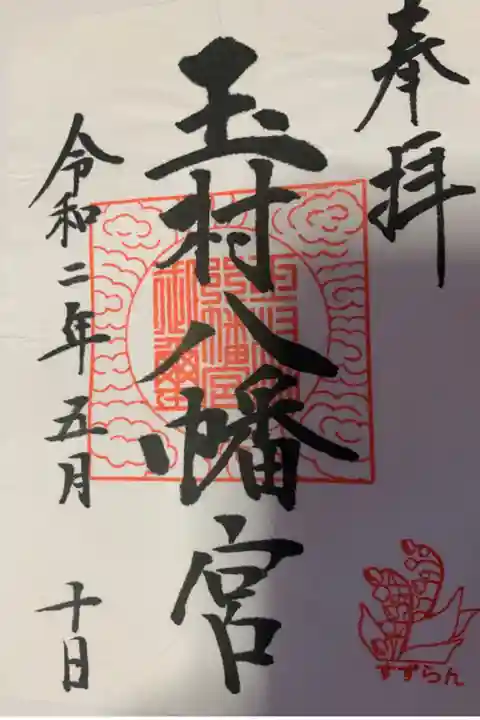 奉拝
玉村八幡宮
令和二年五月十日
すずらん